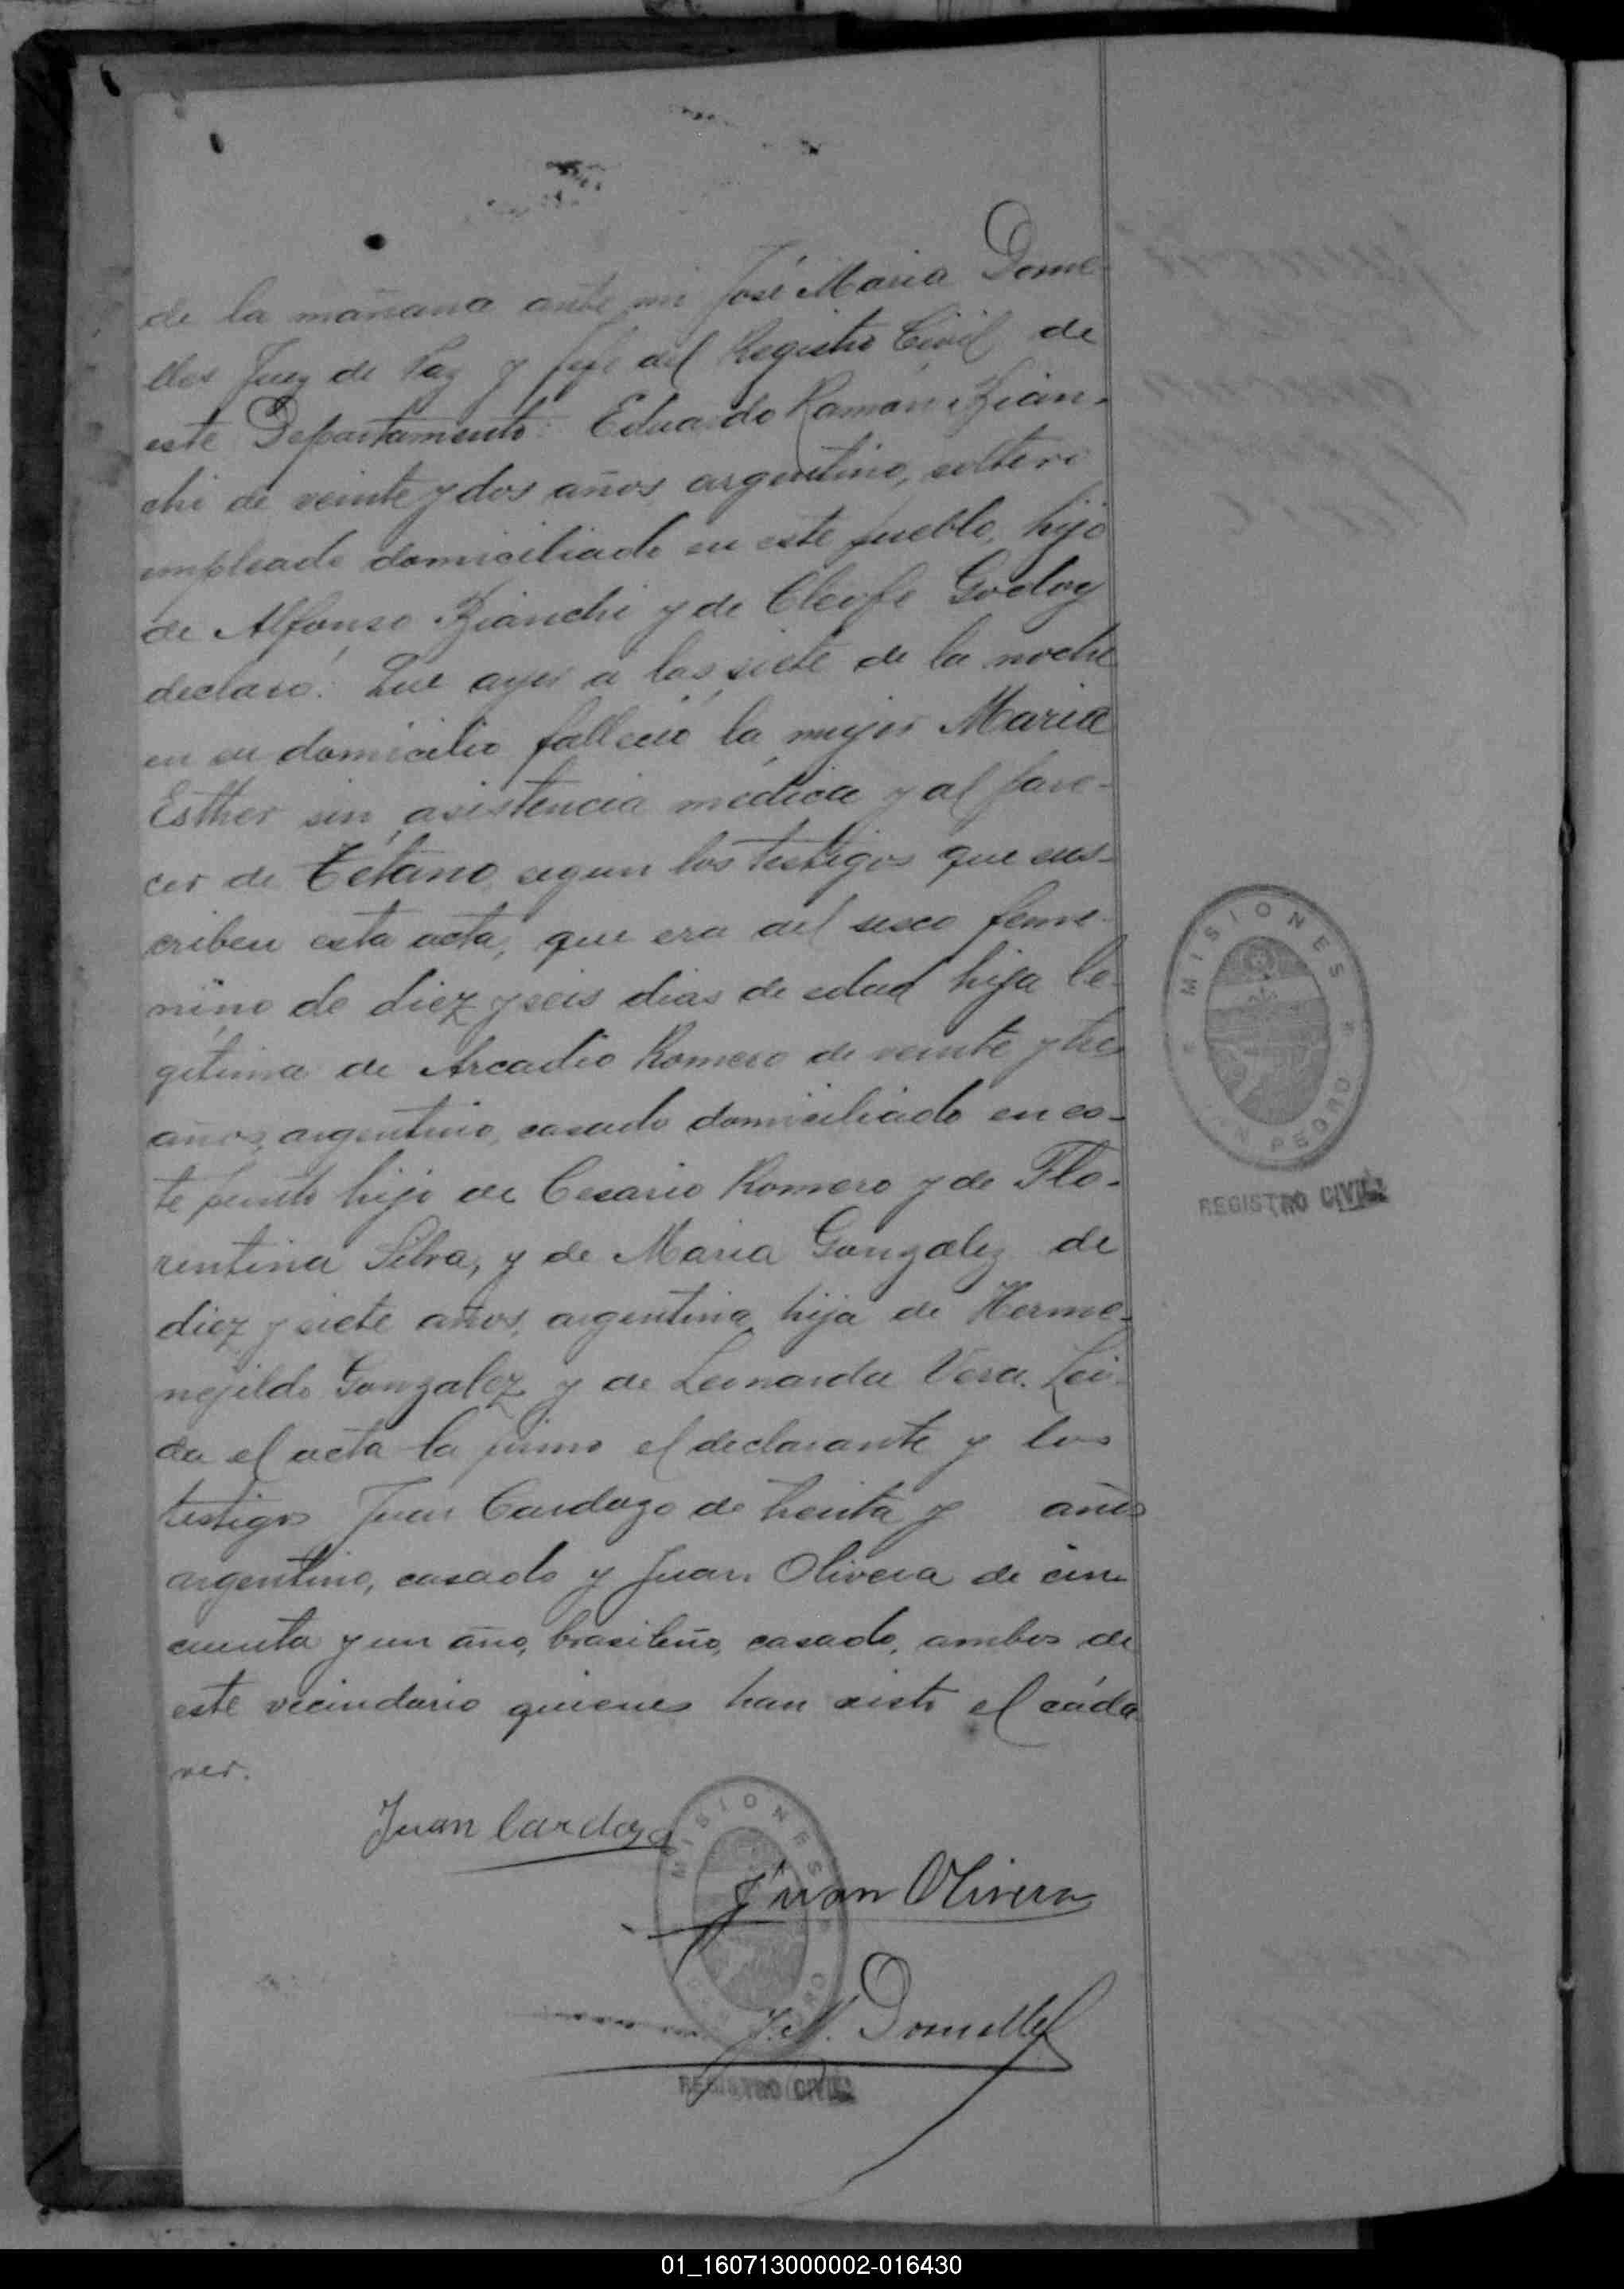 de la mañana ante mi José Maria Dome-
lles Juez de Paz y Jefe del Registro Civil de
este Departamento: Eduardo Ramón Bian-
chi de veinte y dos años argentino, soltero
empleado domiciliado en este pueblo, hijo
de Alfonso Bianchi y de Cleofe Godoy
declaró: Que ayer a las siete de la noche
en su domicilio falleció la mujer Maria
Esther sin asistencia médica y al pare-
cer de Tétano segun los testigos que sus-
criben esta acta, que era del sesco feme-
nino de diez y seis dias de edad hija le-
gitima de Arcadio Romero de veinte y tres
años, argentino, casado domiciliado en es-
te punto hijo de Cesario Romero y de Flo-
rentina Silva, y de Maria Gonzalez de
diez y siete años, argentina hija de Herme-
nejildo Gonzalez y de Leonarda Vera. Lei-
da el acta la firmo el declarante y los
testigos Juan Cardozo de treinta y años
argentino, casado y Juan Olivera de cin
cuenta y un año, brasileño, casado, ambos de
este vecindario quienes han visto el cáda
ver.
MISIONES
SAN PEDRO
REGISTRO CIVIL
Juan Cardozo
MISIONES
Juan Olivera
J. M. Domelles
REGISTRO CIVIL
01_160713000002-016430